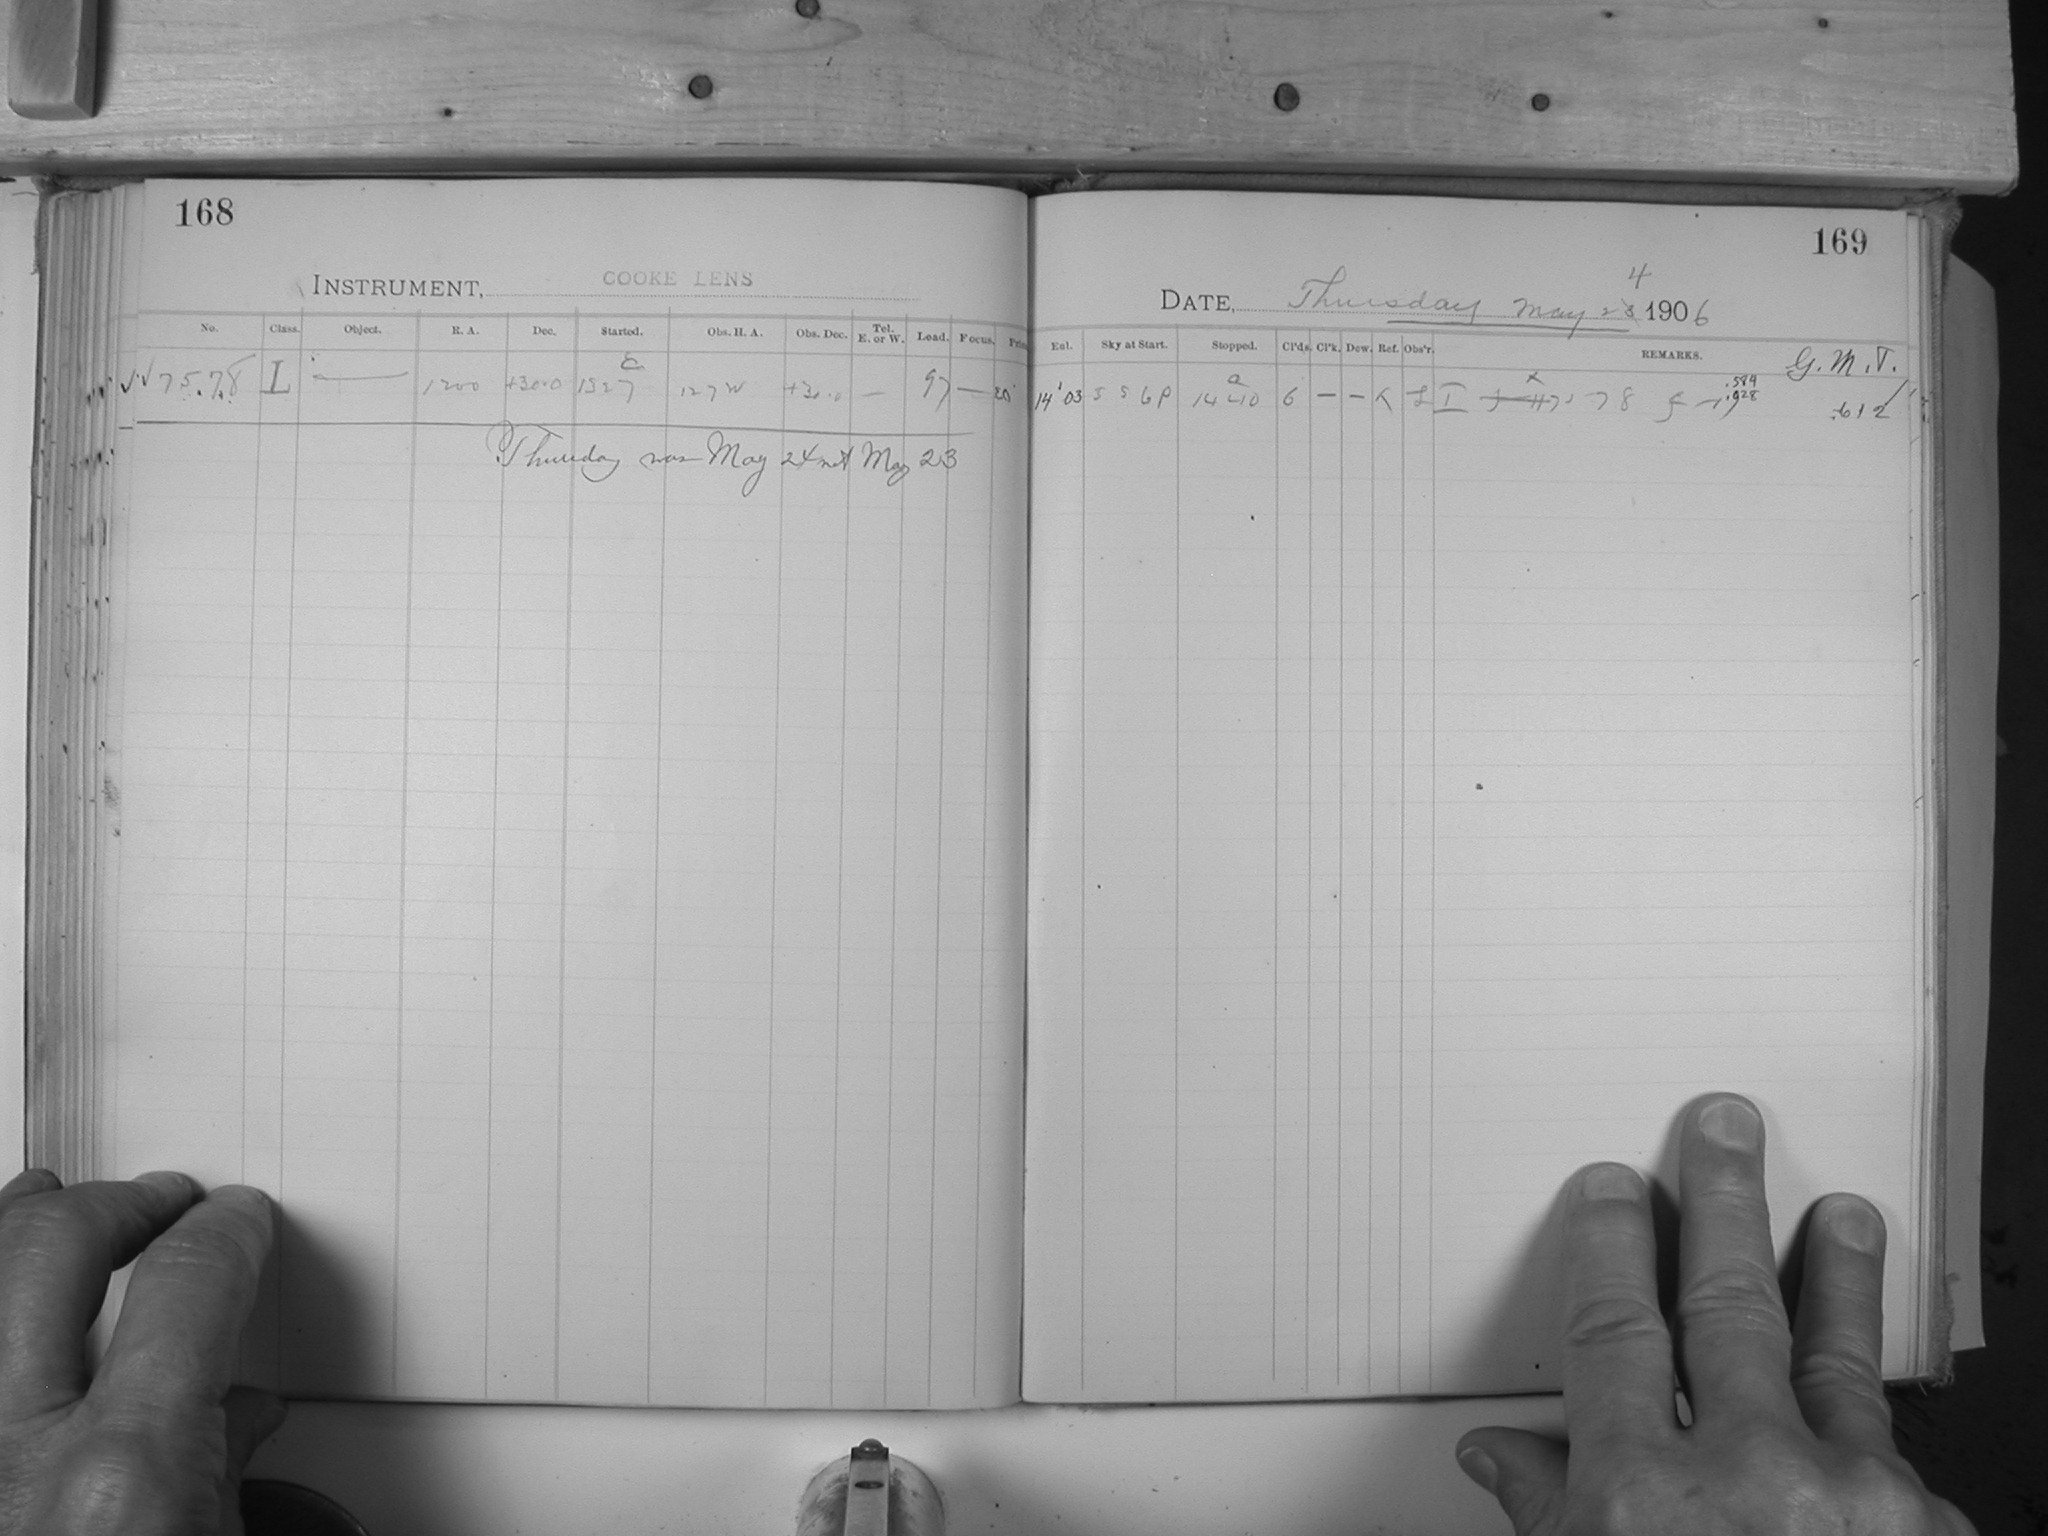 168
INSTRUMENT, COOKE LENS
No. Class. Object. R. A. Dec. Started. Obs. H. A. Obs. Dec. Tel. E. or W. Load. Focus.
7578 I — 1200 +30.0 1327 127 W +30.0 — 97 — 20
Thursday was May 24 not May 23
169
4
DATE, Thursday May 23 1906
Exl. Sky at Start. Stopped. Cl'ds. Cl'k. Dew. Ref. Obs'r. REMARKS. G. M. T.
14' 03 5 5 6 P 14 40 6 — — I 78 .584 .028 .612